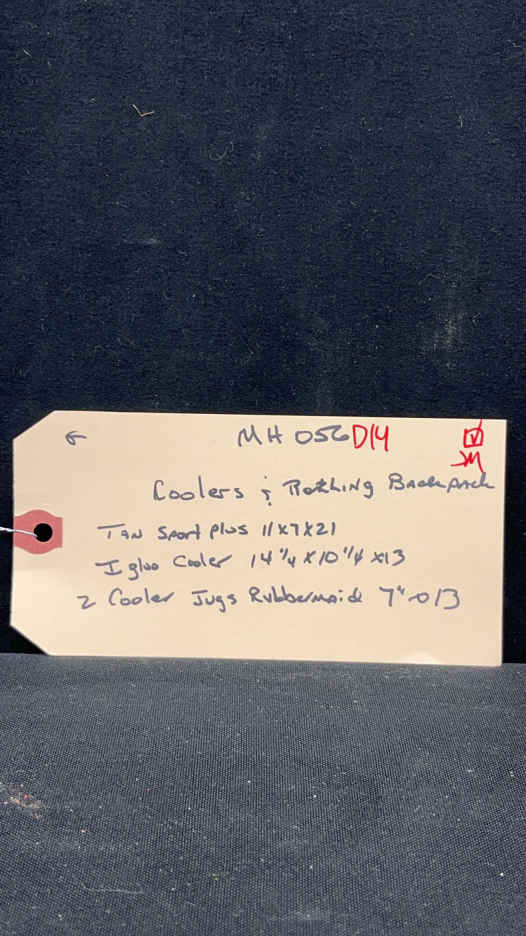 G MH 056 D14
JM
Coolers & Bathing Backpack
Tan Sport Plus 11x7x21
Igloo Cooler 14 1/4 x 10 1/4 x 13
2 Cooler Jugs Rubbermaid 7" 13